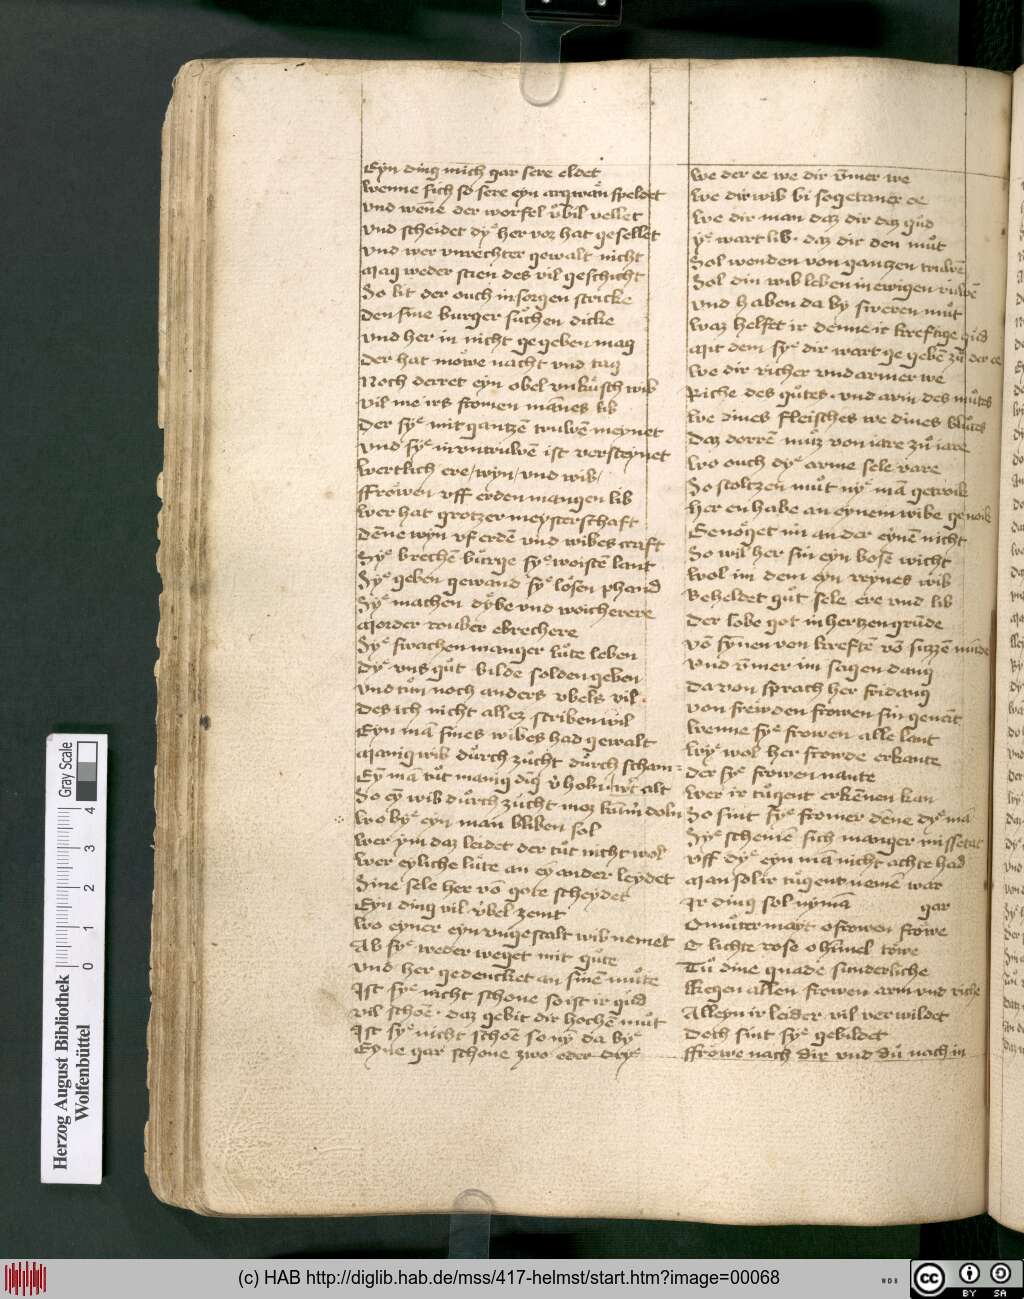 Eyn ding mich gar sere eldet
wenne sich so sere eyn argwan speldet
vnd wēne der worfel vͦbil vellet
vnd scheidet dyͤ her vor hat gesellet
vnd wer vnrechter gewalt nicht
Mag weder stien des vil geschicht
So lit der ouch in sorgen stricke
den sine burger suͦchen dicke
vnd her in nicht gegeben mag
der hat moͤwe nacht vnd tag
Noch derret eyn obel vnkuͤsch wib
vil me irs fromen mānes lib
der syͤ mit gantzē truwē meynet
vnd syͤ in vntruwē ist versteynet
wertlich ere / wyn / vnd wib /
ffrowen vff erden mangen lib
wer hat grotzer meysterschaft
dēne wyn vf erdē vnd wibes craft
Syͤ brechē burge syͤ woistē lant
Syͤ geben gewand syͤ loͤsen phand
Syͤ machen dyͤbe vnd woicherere
Morder rouber ebrechere
Syͤ swachen manger luͤte leben
dyͤ vns guͦt bilde solden geben
vnd tuͦn noch anders vbels vil
des ich nicht allez scriben wil
Eyn mā sines wibes had gewalt
Manig wib durch zucht durch scham
So eȳ wib durch zucht moz kūm doln
wo byͤ eyn man bliben sol
wer ym daz leidet der tuͦt nicht wol
wer eyliche luͤte an eyander leydet
Sine sele her vō gote scheydet
Eyn ding vil vͦbel zemt
wo eyner eyn vngestalt wib nemet
Ab syͤ weder weget mit guͤte
vnd her gedencket an sinē muͤte
Ist syͤ nicht schone so ist ir guͦd
vil schoͤē · daz gebit dir hochē muͦt
Ist syͤ nicht schoē so nȳ da byͤ
Eyne gar schone zwo oder dryͤ
we der ee we dir ȳmer we
we dir wib bi sogetaner ee
we dir man daz dir daz guͦd
yͤ wart lib · daz dir den muͦt
Sol wenden von gantzen truwē
Sol din wib leben in ewigen ruwē
vnd haben da by sweren muͦt
waz helfet ir denne ir kreftige guͦd
Mit dem syͤ dir wart gegebē zuͦ der ee
we dir richer vnd armer we
Riche des guͦtes · vnd arm des muͦtes
we dines fleisches we dines bluͦtes
daz dorrē muͦz von iare zuͦ iare
wo ouch dyͤ arme sele vare
So stoltzen muͦt nyͤ mā getroik
her en habe an eynem wibe genoik
Genoͤget im an der eynē nicht
So wil her sin eyn bosē wicht
wol im dem eyn reynes wib
Beheldet guͦt sele ere vnd lib
der lobe got in hertzen grūde
vō synen von kreftē vō sitzē
vnd ȳmer im sagen dang
da von sprach her fridang
von freiden frowen sin genāt
wenne syͤ frowen alle lant
wyͤ wol her frowde erkante
der syͤ frowen nante
wer ir tuͦgent erkēnen kan
So sint syͤ fromer dēne dyͤ mā
Syͤ schemē sich manger missetat
vff dyͤ eyn mā nicht achte had
Man sol ir tuͦgent nemē war
Ir ding sol nyma gar
O muͦter mayt o frowen frowe
O lichte rose o hīmel towe
Tuͦ dine gnade sunderliche
Kegen allen frowen arm vnd riche
Alleyn ir leider vil verwildet
doch sint syͤ gebildet
ffrowe nach dir vnd duͦ nach in
Herzog August Bibliothek
Wolfenbüttel
Gray Scale
0 1 2 3 4
(c) HAB http://diglib.hab.de/mss/417-helmst/start.htm?image=00068
WDB
cc BY SA